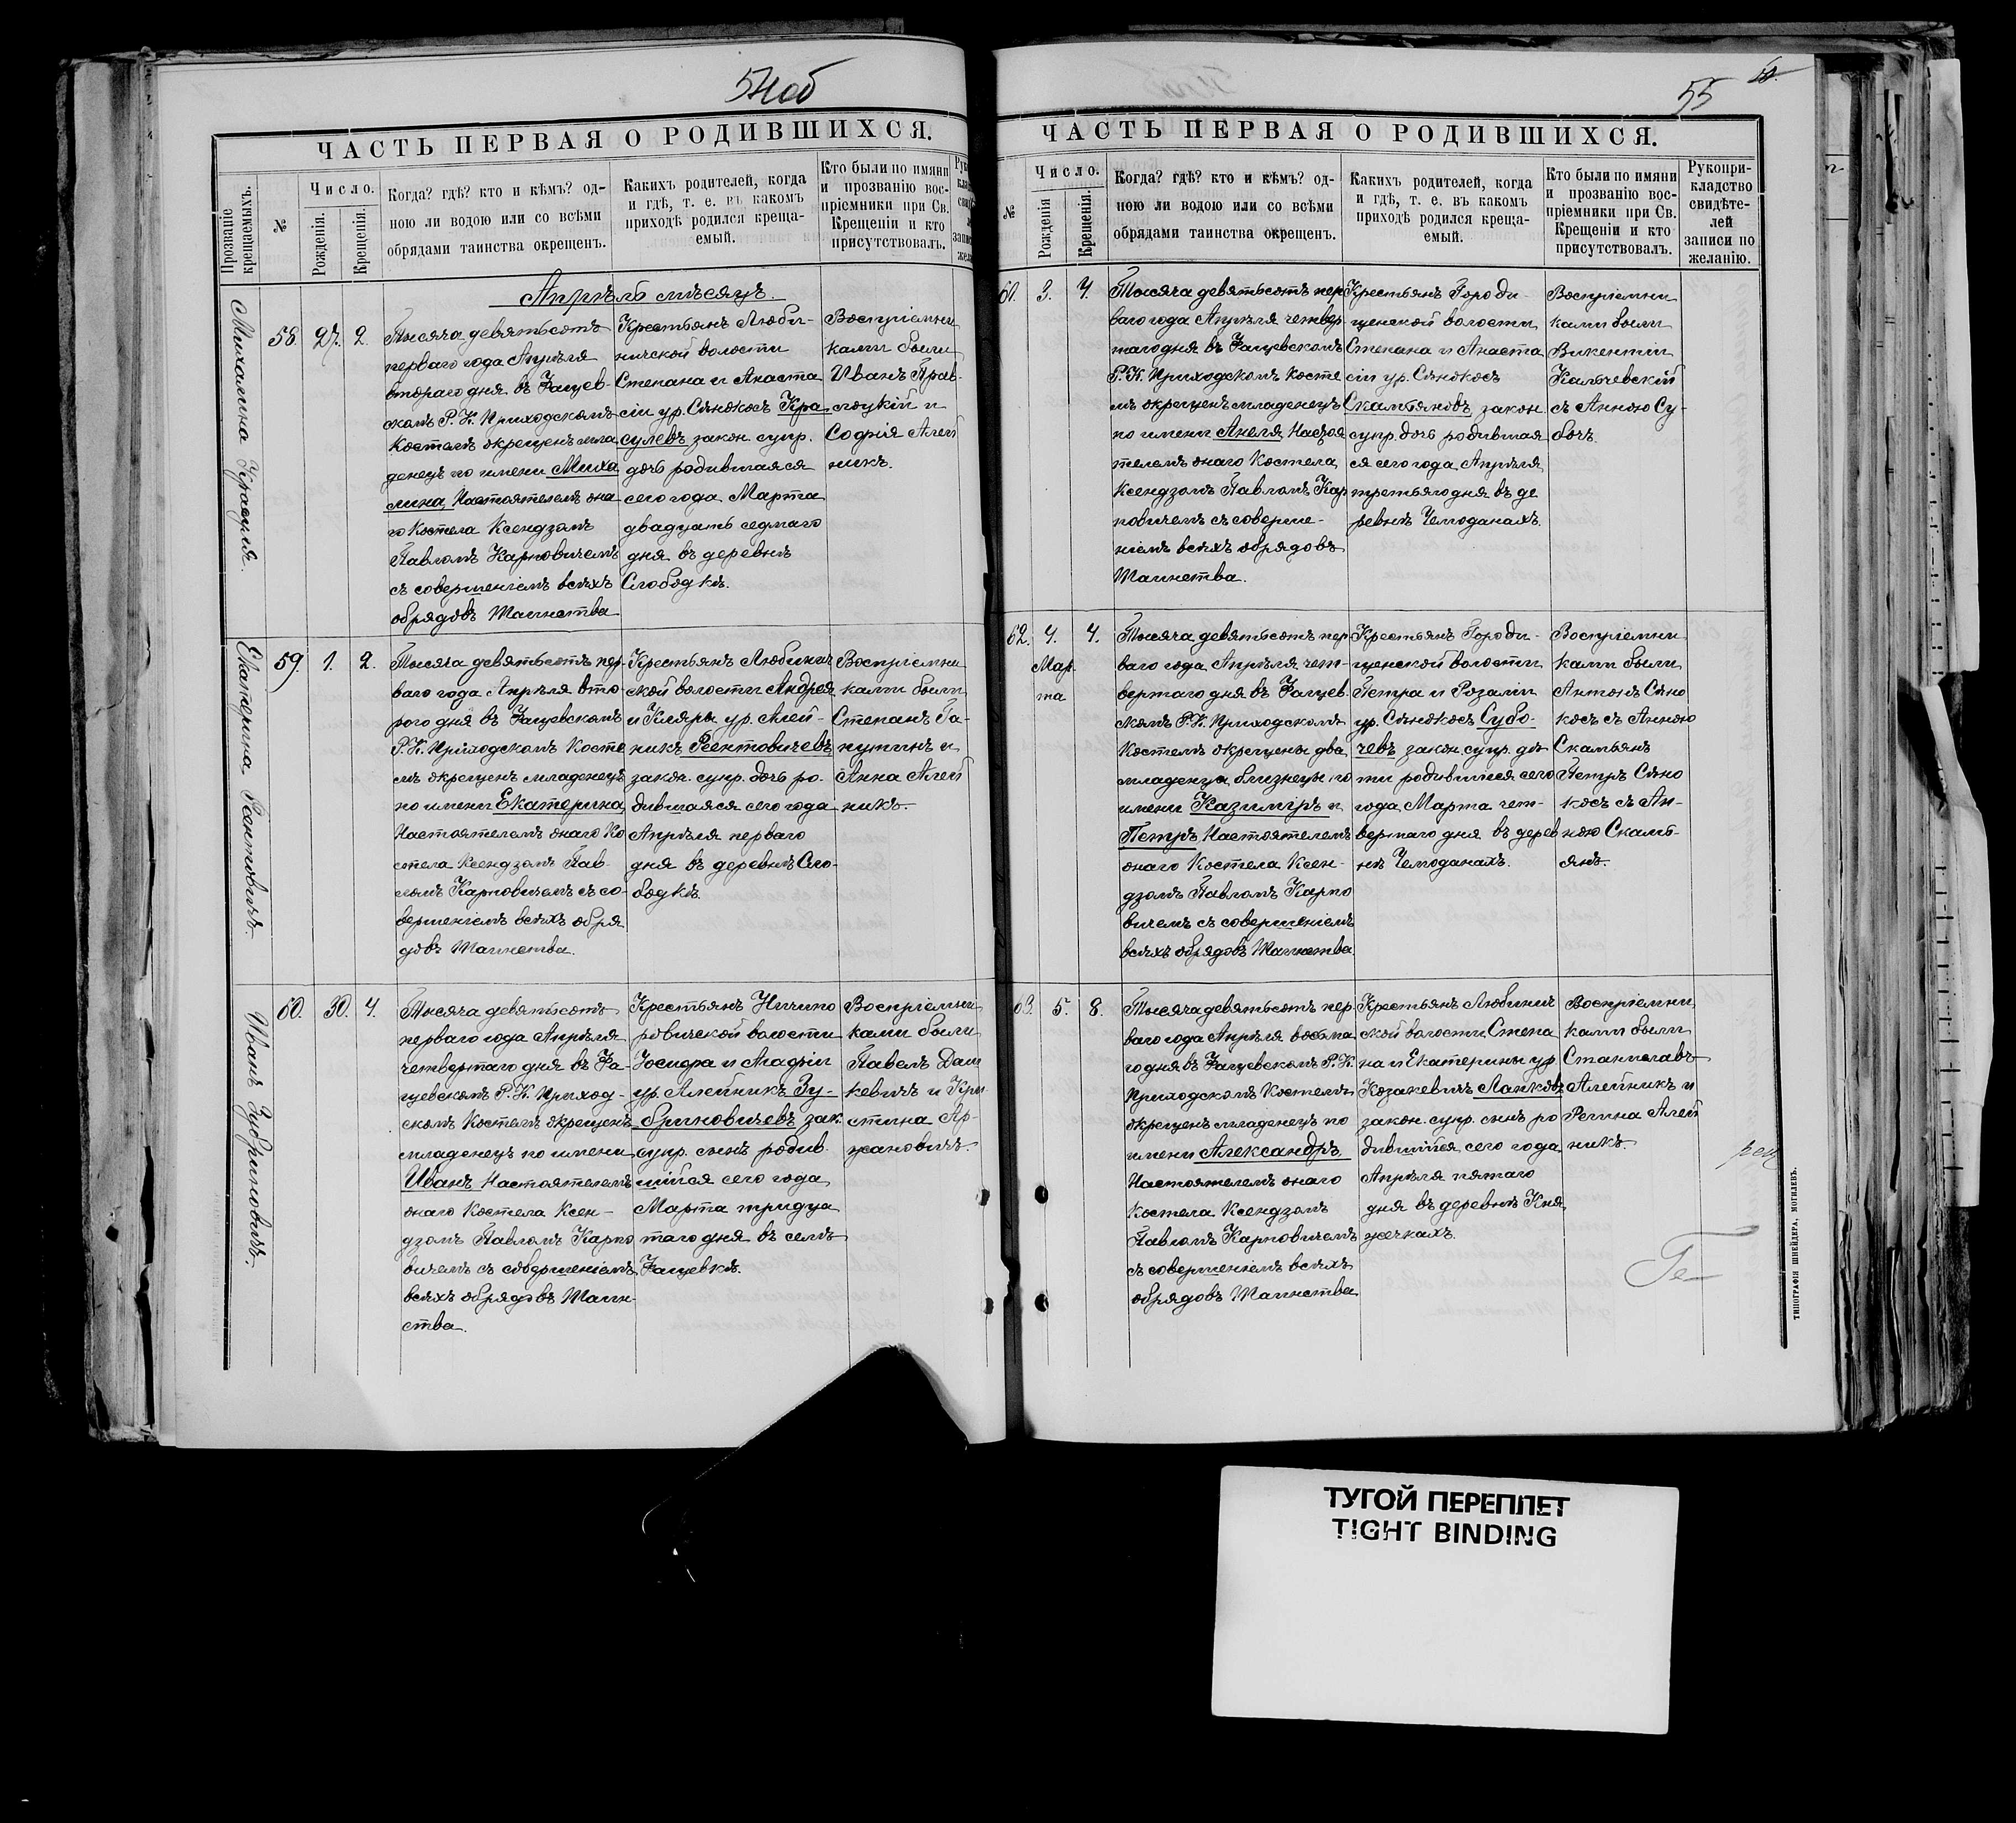 54об
ЧАСТЬ ПЕРВАЯ О РОДИВШИХСЯ.
Прозваніе крещаемыхъ.
№
Число.
Рожденія.
Крещенія.
Когда? гдѣ? кто и кѣмъ? од-
ною ли водою или со всѣми
обрядами таинства окрещенъ.
Какихъ родителей, когда
и гдѣ, т. е. въ какомъ
приходѣ родился креща-
емый.
Кто были по имяни
и прозванію вос-
пріемники при Св.
Крещеніи и кто
присутствовалъ.
Апрѣль мѣсяцъ.
Михалина
58. 27. 2.
Тысяча девятьсотъ
перваго года Апрѣля
втораго дня въ Фащев-
скомъ Р. К. Приходскомъ
Костелѣ окрещенъ мла
денецъ по имени Миха
лина, Настоятелемъ она
го Костела Ксендзомъ
Павломъ Карповичемъ
съ совершеніемъ всѣхъ
обрядовъ Таинства
Крестьянъ Люби-
ничской волости
Степана и Анаста
сіи ур. Сѣнокосъ Кра
сулевъ закон. супр.
дочь родившаяся
сего года Марта
двадцать седмаго
дня въ деревнѣ
Слободкѣ.
Воспріемни
ками были
Иванъ
и
Софія Алей
никъ.
Екатерина Реентовичъ.
59. 1. 2.
Тысяча девятьсотъ пер-
ваго года Апрѣля вто-
рого дня въ Фащевскомъ
Р. К. Приходскомъ Косте
лѣ окрещенъ младенецъ
по имени Екатерина,
Настоятелемъ онаго Ко
стела Ксендзомъ Пав-
ломъ Карповичемъ съ со-
вершеніемъ всѣхъ обря
довъ Таинства.
Крестьянъ Любинич
ской волости Андрея
и Кляры ур. Алей-
никъ Реентовичевъ
закон. супр. дочь ро-
дившаяся сего года
Апрѣля перваго
дня въ деревнѣ Сло-
бодкѣ.
Воспріемни
ками были
Степанъ Га-
и
Анна Алей
никъ.
Иванъ Зубриновичъ.
60. 30. 4.
Тысяча девятьсотъ
перваго года Апрѣля
четвертаго дня въ Фа-
щевскомъ Р. К. Приход-
скомъ Костелѣ окрещенъ
младенецъ по имени
Иванъ Настоятелемъ
онаго Костела Ксен-
дзомъ Павломъ Карпо
вичемъ съ совершеніемъ
всѣхъ обрядовъ Таин-
ства.
Крестьянъ Ничипо
ровичской волости
Іосифа и Агафіи
ур. Алейникъ Зу-
бриновичевъ зак.
супр. сынъ родив-
шійся сего года
Марта тридца
таго дня въ селѣ
Фащевкѣ.
Воспріемни
ками были
Павелъ Даш
кевичъ и Кри
стина Ар-
жановичъ.
55
ЧАСТЬ ПЕРВАЯ О РОДИВШИХСЯ.
№
Число.
Рожденія
Крещенія.
Когда? гдѣ? кто и кѣмъ? од-
ною ли водою или со всѣми
обрядами таинства окрещенъ.
Какихъ родителей, когда
и гдѣ, т. е. въ какомъ
приходѣ родился креща-
емый.
Кто были по имяни
и прозванію вос-
пріемники при Св.
Крещеніи и кто
присутствовалъ.
Рукопри-
кладство
свидѣте-
лей
записи по
желанію.
61. 3. 4.
Тысяча девятьсотъ пер
ваго года Апрѣля четвер-
таго дня въ Фащевскомъ
Р. К. Приходскомъ Косте
лѣ окрещенъ младенецъ
по имени Анеля, Настоя
телемъ онаго Костела
Ксендзомъ Павломъ Кар
повичемъ съ соверше-
ніемъ всѣхъ обрядовъ
Таинства.
Крестьянъ Городи-
щенской волости
Степана и Анаста
сіи ур. Сѣнокосъ
Скамьяновъ закон.
супр. дочь родившая
ся сего года Апрѣля
третьяго дня въ де
ревнѣ Чемоданахъ.
Воспріемни
ками были
Викентій
Кальчевскій
съ Анною Су-
бочъ.
62. 4. 4.
Мар
та
Тысяча девятьсотъ пер
ваго года Апрѣля чет-
вертаго дня въ Фащев-
скомъ Р. К. Приходскомъ
Костелѣ окрещены два
младенца близнецы по
имени Казимиръ и
Петръ Настоятелемъ
онаго Костела Ксен-
дзомъ Павломъ Карпо
вичемъ съ совершеніемъ
всѣхъ обрядовъ Таинства.
Крестьянъ Городи-
щенской волости
Петра и Розаліи
ур. Сѣнокосъ Субо-
чевъ закон. супр. дѣ
ти родившіеся сего
года Марта чет-
вертаго дня въ дерев
нѣ Чемоданахъ.
Воспріемни
ками были
Антонъ Сѣно
косъ съ Анною
Скамьянъ
Петръ Сѣно
косъ съ Ан-
ною Скамь-
янъ.
63. 5. 8.
Тысяча девятьсотъ пер-
ваго года Апрѣля восьма
го дня въ Фащевскомъ Р. К.
Приходскомъ Костелѣ
окрещенъ младенецъ по
имени Александръ
Настоятелемъ онаго
Костела Ксендзомъ
Павломъ Карповичемъ
съ совершеніемъ всѣхъ
обрядовъ Таинства.
Крестьянъ Любинич
ской волости Степа
на и Екатерины ур.
Козакевичъ Лапковъ
закон. супр. сынъ ро
дившійся сего года
Апрѣля пятаго
дня въ деревнѣ Кня
жечкахъ.
Воспріемни
ками были
Станиславъ
Алейникъ и
Регина Алей
никъ.
ТИПОГРАФІЯ ШНЕЙДЕРА, МОГИЛЕВЪ.
ТУГОЙ ПЕРЕПЛЕТ
TIGHT BINDING